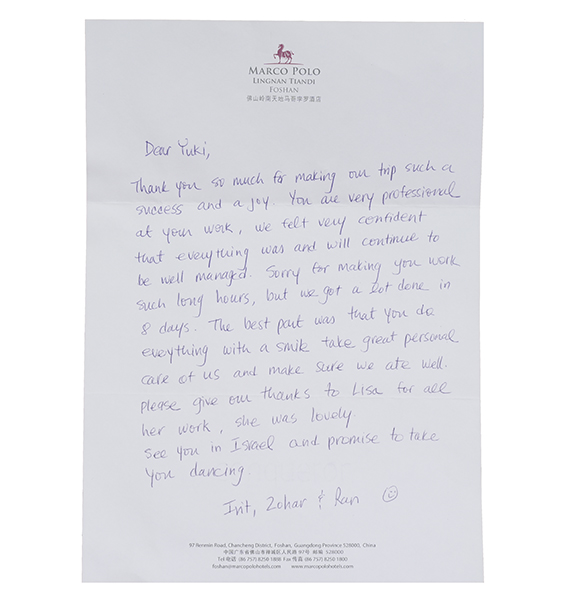 MARCO POLO
LINGNAN TIANDI
FOSHAN
佛山岭南天地马哥孛罗酒店
Dear Yuki,
Thank you so much for making our trip such a
success and a joy. You are very professional
at your work, we felt very confident
that everything was and will continue to
be well managed. Sorry for making you work
such long hours, but we got a lot done in
8 days. The best part was that you do
eveything with a smile take great personal
care of us and make sure we ate well.
please give our thanks to Lisa for all
her work, she was lovely
See you in Israel and promise to take
you dancing.
Irit, Zohar & Ran ☺
97 Renmin Road, Chancheng District, Foshan, Guangdong Province 528000, China
中国广东省佛山市禅城区人民路 97号 邮编 528000
Tel 电话 (86 757) 8250 1888 Fax 传真 (86 757) 8250 1800
foshan@marcopolohotels.com www.marcopolohotels.com